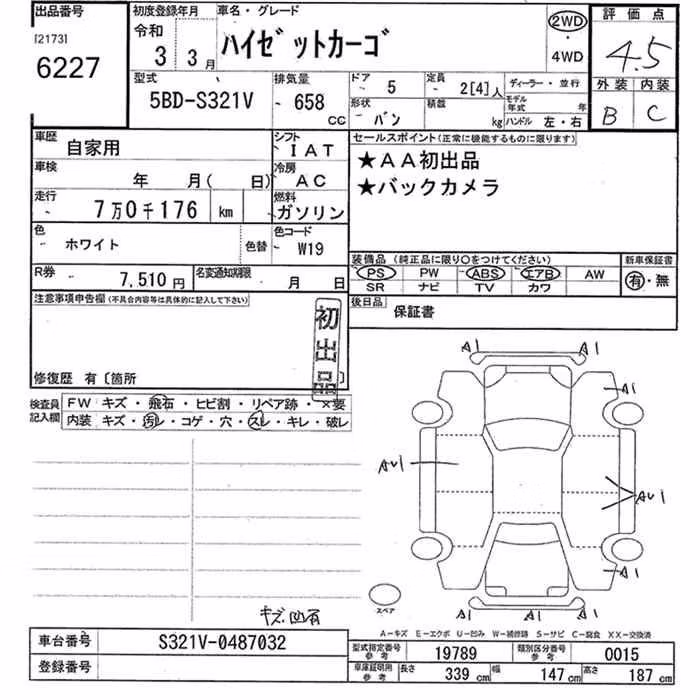 出品番号
[2173]
6227
初度登録年月
令和
3 年 3 月
車名・グレード
ハイゼットカーゴ
2WD
・
4WD
評価点
4.5
外装 内装
B C
型式
5BD-S321V
排気量
~ 658 CC
ドア
~ 5
定員
~ 2[4]人
ディーラー・並行
形状
~ バン
積載
kg
モデル年式 年
ハンドル 左・右
車歴
自家用
シフト
~ IAT
車検
年 月( 日)
冷房
~ AC
走行
~ 7万0千176 km
燃料
ガソリン
色
~ ホワイト
色替
色コード
~ W19
R券
~ 7,510円
名変通知期限
月 日
セールスポイント(正常に機能するものに限ります)
★AA初出品
★バックカメラ
装備品 (純正品に限り○をつけてください)
PS PW ABS エアB AW
SR ナビ TV カワ
新車保証書
有・無
後日品
保証書
注意事項申告欄(不具合内容等は具体的に記入して下さい)
初出品
修復歴 有〔箇所 〕
検査員記入欄
FW キズ・飛石・ヒビ割・リペア跡・×要
内装 キズ・汚レ・コゲ・穴・スレ・キレ・破レ
A1 A1
A1
AU1
AU1
A1
A1 A1 A1
スペア
キズ凹有
A-キズ E-エクボ U-凹み W-補修跡 S-サビ C-腐食 XX-交換済
車台番号
S321V-0487032
登録番号
型式指定番号参考
19789
類別区分番号参考
0015
車庫証明用参考
長さ 339 cm
幅 147 cm
高さ 187 cm